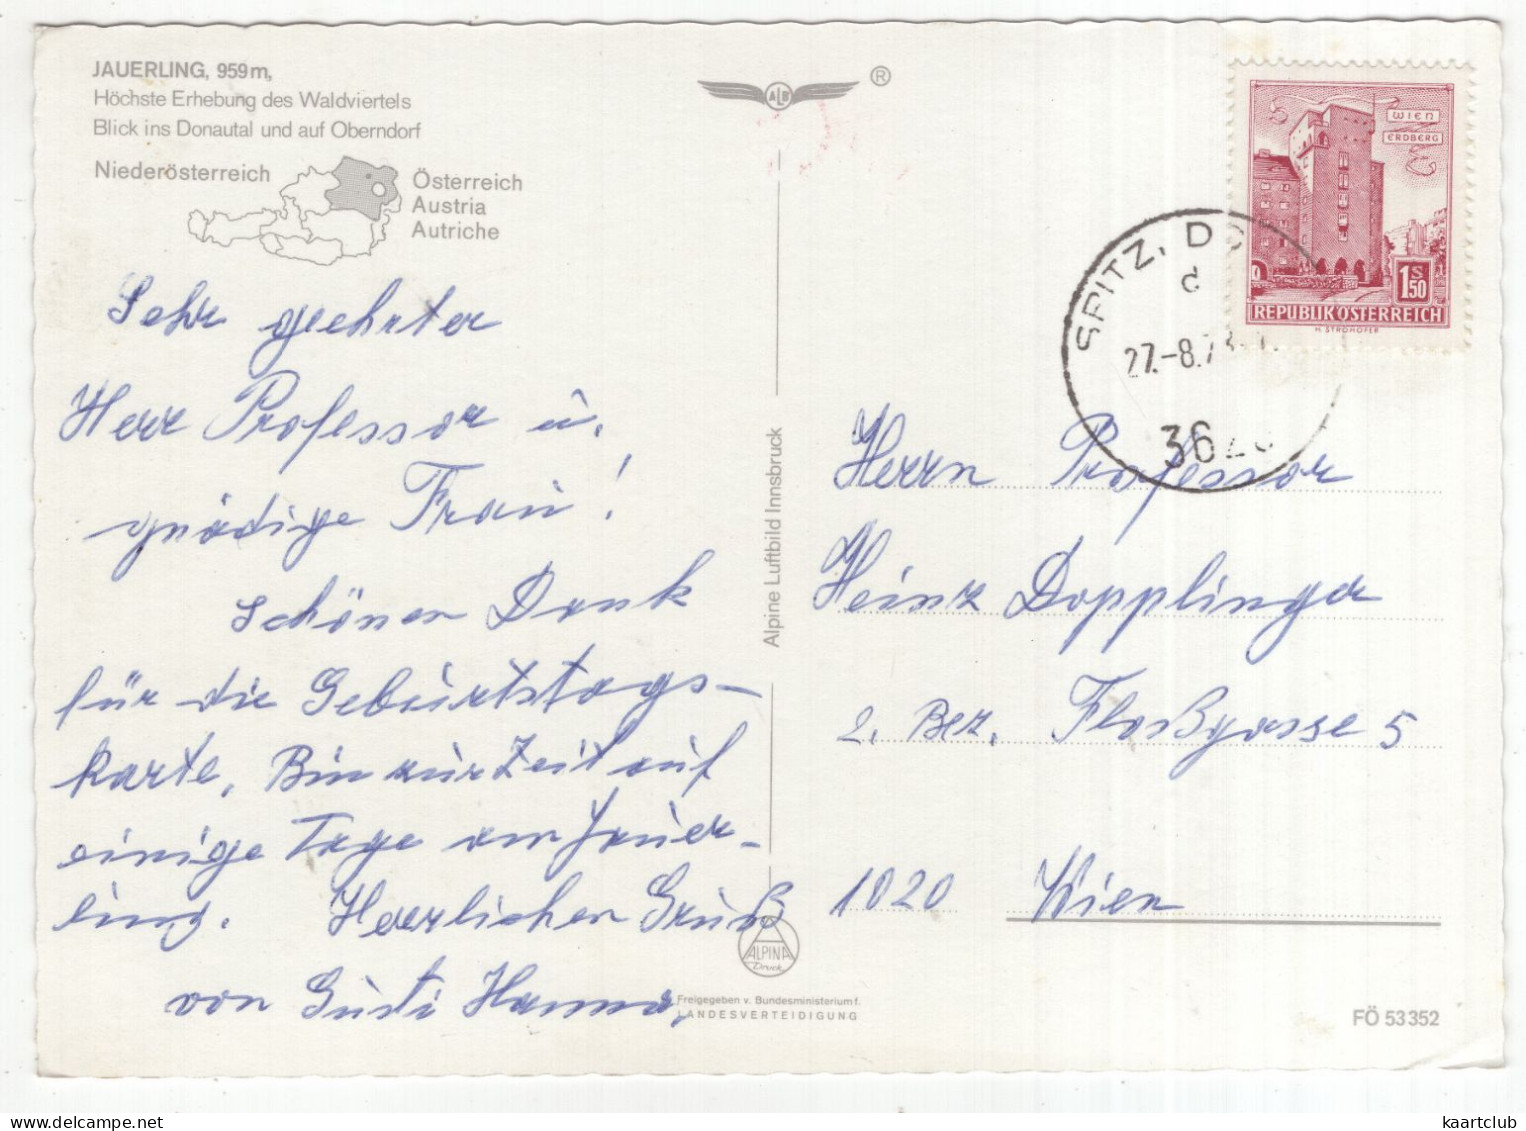 JAUERLING, 959m,
Höchste Erhebung des Waldviertels
Blick ins Donautal und auf Oberndorf
Niederösterreich
Österreich
Austria
Autriche
Sehr geehrter
Herr Professor u.
gnädige Frau!
Schönen Dank
für die Geburtstags-
karte. Bin zur Zeit auf
einige Tage am Jauer-
ling. Herzlichen Gruß
von Gusti Hanna
ALB
®
Alpine Luftbild Innsbruck
ALPINA
Druck
Freigegeben v. Bundesministerium f.
LANDESVERTEIDIGUNG
WIEN
ERDBERG
1S
50
REPUBLIK ÖSTERREICH
H. STROHOFER
SPITZ, DO
d
27.-8.7
3620
Herrn Professor
Heinz Dopplinger
2. Bez. Floßgasse 5
1020 Wien
FÖ 53 352
kaartclub